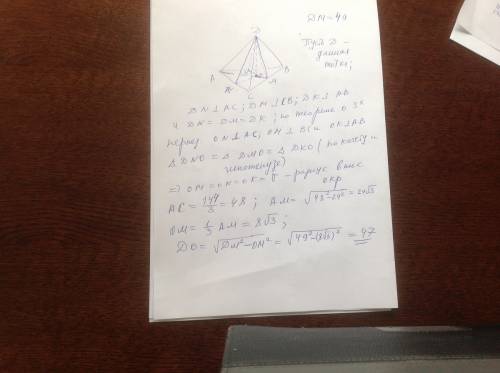 DM = 49
Пусть D -
данная
точка;
D
A
B
N
M
C
DN ⊥ AC; DM ⊥ CB; DK ⊥ AB
и DN = DM = DK; по теореме о 3х
перпед ON ⊥ AC; OM ⊥ BC и OK ⊥ AB
Δ DNO = Δ DMO = Δ DKO (по катету и
гипотенузе)
=> OM = ON = OK = r - радиус впис
окр
AC = 144/3 = 48; AM = √48²-24² = 24√3
OM = 1/3 AM = 8√3;
DO = √DM²-OM² = √49²-(8√3)² = 47